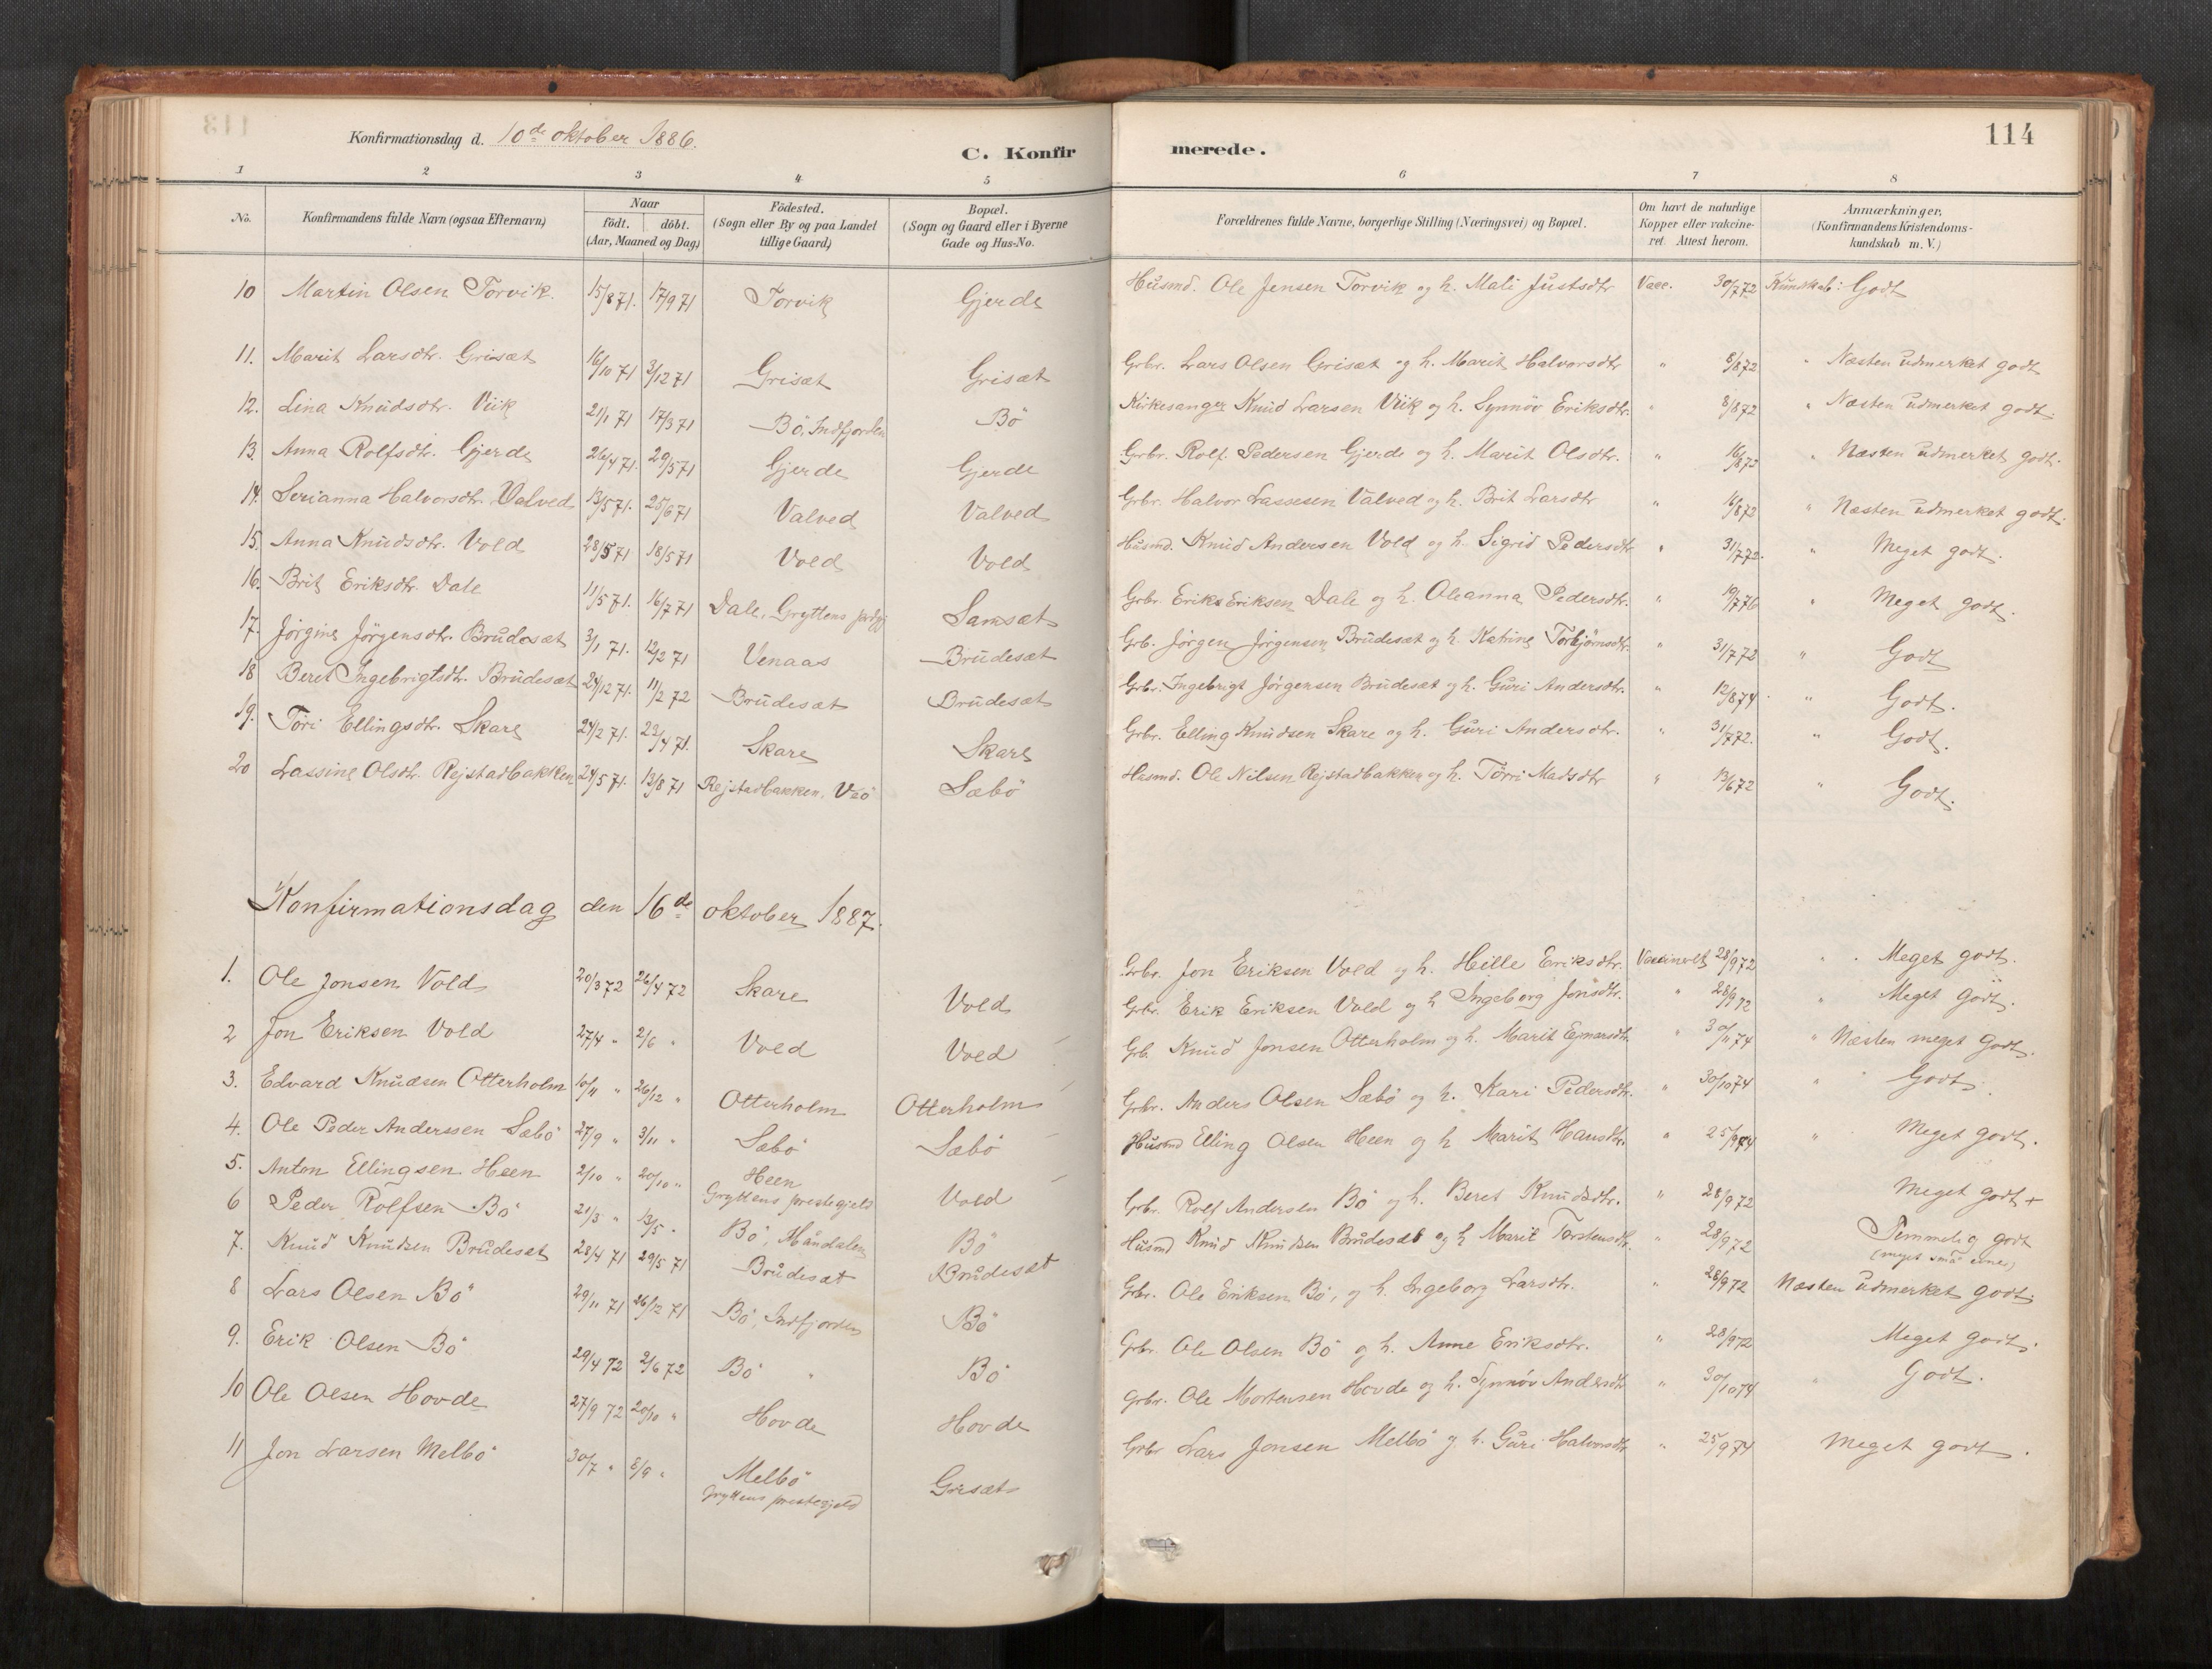 Konfirmationsdag d. 10de oktober 1886.
C. Konfirmerede.
114
1 2 3 4 5 6 7 8
No. Konfirmandens fulde Navn (ogsaa Efternavn) Naar födt. döbt. (Aar, Maaned og Dag) Födested. (Sogn eller By og paa Landet tillige Gaard) Bopæl. (Sogn og Gaard eller i Byerne Gade og Hus-No. Forældrenes fulde Navne, borgerlige Stilling (Næringsvei) og Bopæl. Om havt de naturlige Kopper eller vakcineret. Attest herom. Anmærkninger, (Konfirmandens Kristendomskundskab m. V.)
10 Martin Olsen Torvik. 15/8 71. 17/9 71 Torvik Gjerde Husmd. Ole Jensen Torvik og h. Mali Justsdtr Vacc. 30/7 72 Kundskab: Godt
11. Marit Larsdtr. Grisæt 16/10 71 3/12 71 Grisæt Grisæt Grbr. Lars Olsen Grisæt og h. Marit Halvorsdtr " 8/8 72 " Næsten udmerket godt
12. Lina Knudsdtr. Viik 21/1 71 17/3 71 Bö, Indfjorden Bö Kirkesanger Knud Larsen Viik og h. Synnöv Eriksdtr. " 8/8 72 " Næsten udmerket godt.
13. Anna Rolfsdtr. Gjerde 26/4 71. 29/5 71 Gjerde Gjerde Grbr. Rolf Pedersen Gjerde og h. Marit Olsdtr. " 16/8 72 " Næsten udmerket godt.
14. Serianna Halvorsdtr. Valved 13/5 71. 25/6 71 Valved Valved Grbr. Halvor Lassesen Valved og h. Brit Larsdtr " 16/8 72 " Næsten udmerket godt.
15. Anna Knudsdtr. Vold 28/5 71 18/5 71 Vold Vold Husmd. Knud Andersen Vold og h. Sigrid Pedersdtr " 31/7 72. " Meget godt.
16. Brit Eriksdtr. Dale 11/5 71. 16/7 71 Dale, Gryttens prdgj Samsæt Grbr. Erik Eriksen Dale og h. Oleanna Pedersdtr. " 19/7 76 " Meget godt.
17. Jörgine Jörgensdtr. Brudesæt 3/1 71. 12/2 71 Venaas Brudesæt Grb. Jörgen Jörgensen Brudesæt og h. Katrine Torbjörnsdtr. " 31/7 72 " Godt
18 Beret Ingebrigtsdtr. Brudesæt 24/12 71. 11/2 72 Brudesæt Brudesæt Grbr. Ingebrigt Jörgensen Brudesæt og h. Guri Andersdtr. " 12/8 74. " Godt.
19. Töri Ellingsdtr. Skare 24/2 71. 23/4 71. Skare Skare Grbr. Elling Knudsen Skare og h. Guri Andersdtr. " 31/7 72. " Godt.
20 Lassine Olsdtr. Rejstadbakken 24/5 71. 13/8 71 Rejstadbakken, Veö Sæbö Husmd. Ole Nilsen Rejstadbakken og h. Törri Madsdtr " 13/6 72 " Godt.
Konfirmationsdag den 16de oktober 1887.
1. Ole Jonsen Vold 20/3 72 26/4 72 Skare Vold Grbr. Jon Eriksen Vold og h. Heille Eriksdtr. Vaccineret 28/9 72 " Meget godt.
2 Jon Eriksen Vold 27/4 " 2/6 " Vold Vold Grbr. Erik Eriksen Vold og h Ingeborg Jonsdtr. " 28/9 72 " Meget godt.
3. Edvard Knudsen Otterholm 10/11 " 26/12 " Otterholm Otterholm Grb. Knud Jonsen Otterholm og h. Marit Ejnarsdtr. " 30/11 74 " Næsten meget godt.
4. Ole Peder Anderssen Sæbö 27/9 " 3/11 " Sæbö Sæbö Grbr. Anders Olsen Sæbö og h. Kari Pedersdtr. " 30/10 74 " Godt.
5. Anton Ellingsen Heen 2/10 " 20/10 " Heen Gryttens prestegjeld Vold Husmd Elling Olsen Heen og h Marit Hansdtr. " 25/9 74 " Meget godt.
6 Peder Rolfsen Bö 21/3 " 13/5 " Bö, Maandalen Bö Grbr. Rolf Andersen Bö og h. Beret Knudsdtr. " 28/9 72 Meget godt +
7. Knud Knudsen Brudesæt 28/4 71 29/5 71 Brudesæt Brudesæt Husmd Knud Knudsen Brudesæt og h Marit Torstensdtr. " 28/9 72 Temmelig godt (meget små evner)
8 Lars Olsen Bö 29/11 71 26/12 71 Bö, Indfjorden Bö Grbr. Ole Eriksen Bö, og h. Ingeborg Larsdtr. " 28/9 72 Næsten udmerket godt.
9. Erik Olsen Bö 29/4 72 2/6 72 Bö " Bö Grbr. Ole Olsen Bö og h. Anne Eriksdtr. " 28/9 72 Meget godt.
10 Ole Olsen Hovde 27/9 72 20/10 " Hovde Hovde Grbr. Ole Mortensen Hovde og h. Synnöv Andersdtr " 30/10 74 " Godt.
11 Jon Larsen Melbö 30/7 " 8/9 " Melbö Gryttens prestegjeld Grisæt Grbr Lars Jonsen Melbö og h. Guri Halvorsdtr " 25/9 74 Meget godt.